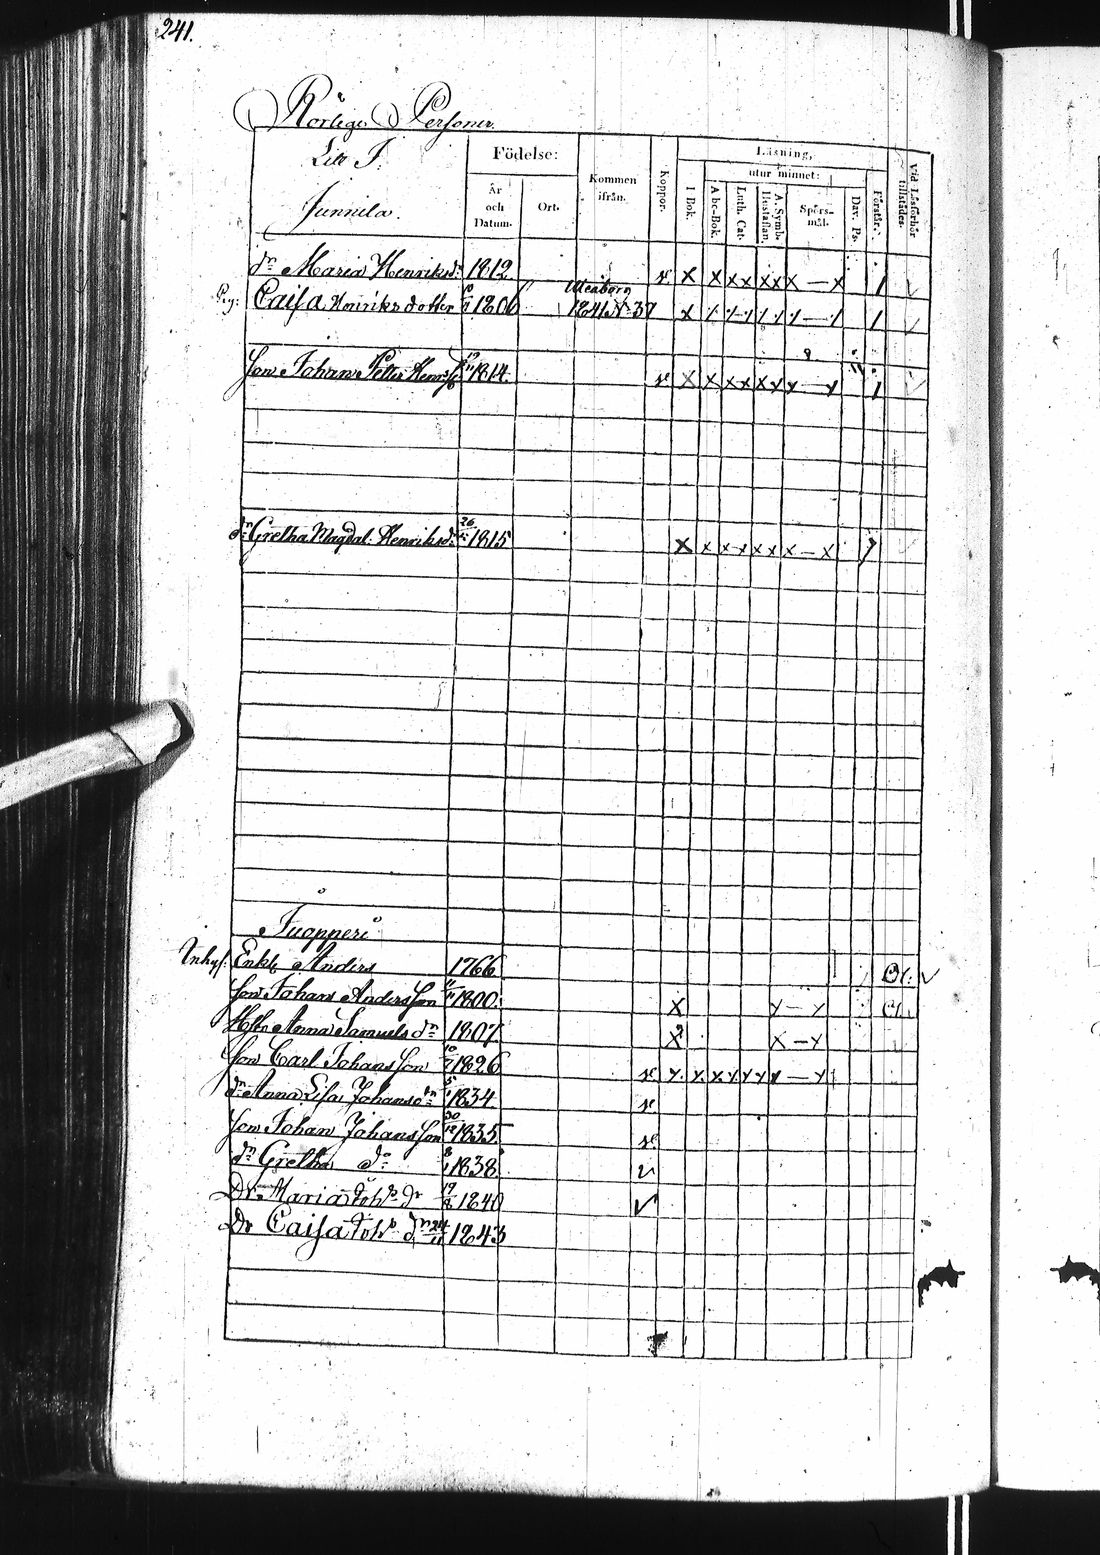 241.
Rörliga Personer.
Litt J.
Junnila.
Födelse:
År och Datum.
Ort.
Kommen ifrån.
Koppor.
Läsning,
utur minnet:
I Bok.
Abc-Bok.
Luth. Cat.
A. Symb. Hustaflan.
Spörs-mål.
Dav. Ps.
Förstår.
Vid Läsförhör tillstädes.
dr Maria Henriksdr 1812 x x x x x x x — x 1
Caisa Henriksdotter 1806 Uleåborg 1841 N:37 x 1
Son Johan Petter Henrs 1814 x x x x x x x — x 1
dr Gretha Magdal. Henriksdr 26 1815 x x x x x x x — x
Juopperi
Inhys: Enkl Anders 1766
Son Johan Andersson 1800 x x — x
Hstr Anna Samuels dr 1807 x x — x
Son Carl Johansson 1826 x x x x x x x — x
dr Anna Lisa Johansdr 1834
Son Johan Johansson 30/12 1835
dr Gretha do 1838
Dr Maria Johs dr 19/8 1840
Dr Caisa Johs dr 24/11 1843